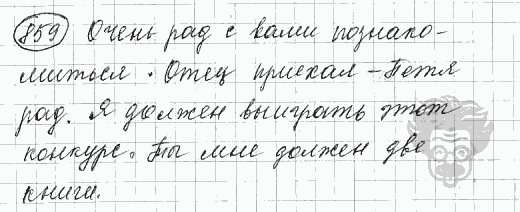 859 Очень рад с вами познако-
миться. Отец приехал - Петя
рад. Я должен выиграть этот
конкурс. Ты мне должен две
книги.